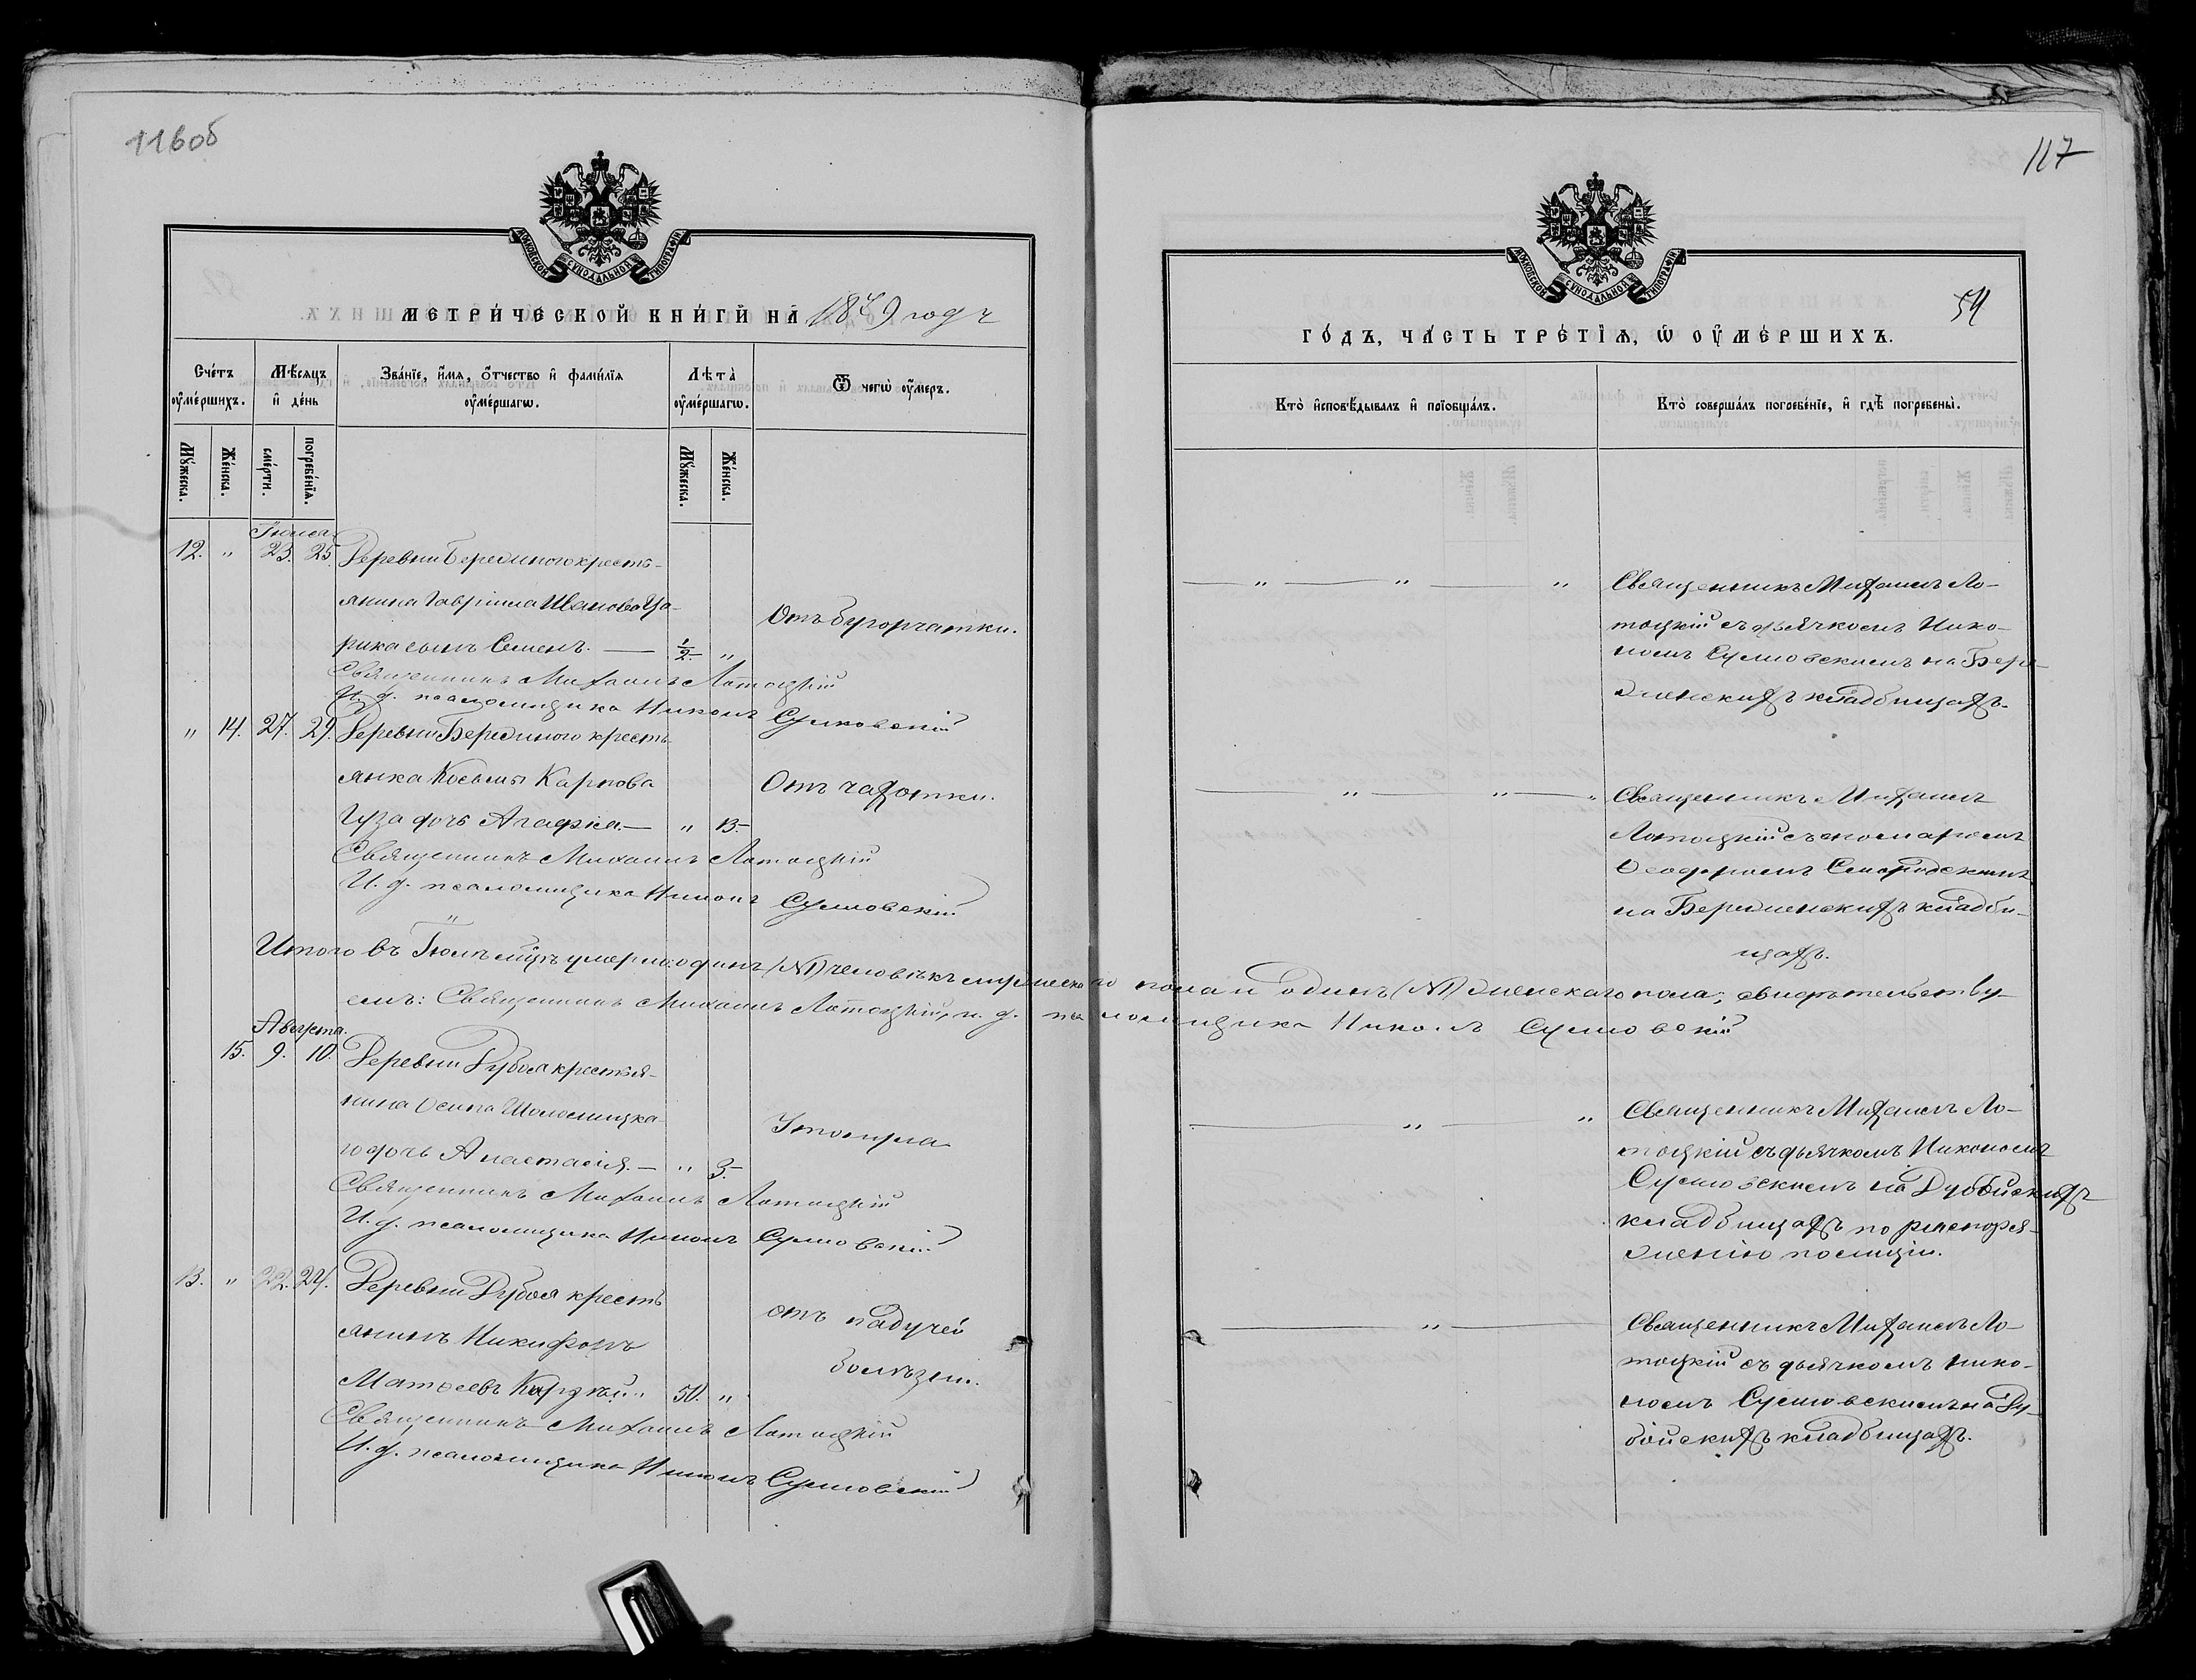 116об
МОСКОВСКОЙ СѴНОДАЛЬНОЙ ТИПОГРАФІИ
МЕТРИ́ЧЕСКОЙ КНИ́ГИ НА 1879 годъ
Сче́тъ ᲂу҆ме́ршихъ.
Мѣ́сѧцъ и҆ де́нь
Зва́нїе, и҆́мѧ, ѻ҆́тчество и҆ фами́лїѧ ᲂу҆ме́ршагѡ.
Лѣ́та ᲂу҆ме́ршагѡ.
Ѿ чегѡ̀ ᲂу҆́меръ.
Мꙋ́жеска.
Же́нска.
сме́рти.
погребе́нїѧ.
Мꙋ́жеска.
Же́нска.
Іюля
12. " 23. 25. Деревни Бережного кресть-
янина Гавріила Иванова
рика сынъ Семенъ. — ½ " Отъ бугорчатки.
Священникъ Михаилъ Лотоцкій
И. д. псаломщика Никонъ Сулковскій
" 14. 27. 29. Деревни Бережного кресть-
янка Косьмы Карпова Отъ чахотки.
Гуза дочь Агафія. — " 13.
Священникъ Михаилъ Лотоцкій
И. д. псаломщика Никонъ Сулковскій
Итого въ Іюлѣ мцѣ умерло: одинъ (№1) человѣкъ мужеского пола и одинъ (№1) женскаго пола; свидѣтельству-
емъ: Священникъ Михаилъ Лотоцкій, и. д. псаломщика Никонъ Сулковскій
Августа
15. 9. 10. Деревни Дубоя крестья-
нина Осипа Шоломицка-
го дочь Анастасія. — " 3. Утопла
Священникъ Михаилъ Лотоцкій
И. д. псаломщика Никонъ Сулковскій
13. " 22. 24. Деревни Дубоя кресть
янинъ Никифоръ отъ падучей
Матѳеевъ " 50. " болѣзни.
Священникъ Михаилъ Лотоцкій
И. д. псаломщика Никонъ Сулковскій
117
МОСКОВСКОЙ СѴНОДАЛЬНОЙ ТИПОГРАФІИ
54
ГО́ДЪ, ЧА́СТЬ ТРЕ́ТЇѦ, Ѡ ОУ҆МЕ́РШИХЪ.
Кто̀ и҆сповѣ́дывалъ и҆ прїобща́лъ.
Кто̀ соверша́лъ погребе́нїе, и҆ гдѣ̀ погребены̀.
— " — " — " Священникъ Михаилъ Ло-
тоцкій съ дьячкомъ Нико-
номъ Сулковскимъ на Бере-
жненскихъ кладбищахъ.
— " — " — " Священникъ Михаилъ
Лотоцкій съ пономаремъ
Ѳеодоромъ
на Бережненскихъ кладби-
щахъ.
— " — " Священникъ Михаилъ Ло-
тоцкій съ дьячкомъ Никономъ
Сулковскимъ на Дубойскихъ
кладбищахъ по распоря-
женію полиціи.
— " — Священникъ Михаилъ Ло-
тоцкій съ дьячкомъ Нико-
номъ Сулковскимъ на Ду-
бойскихъ кладбищахъ.